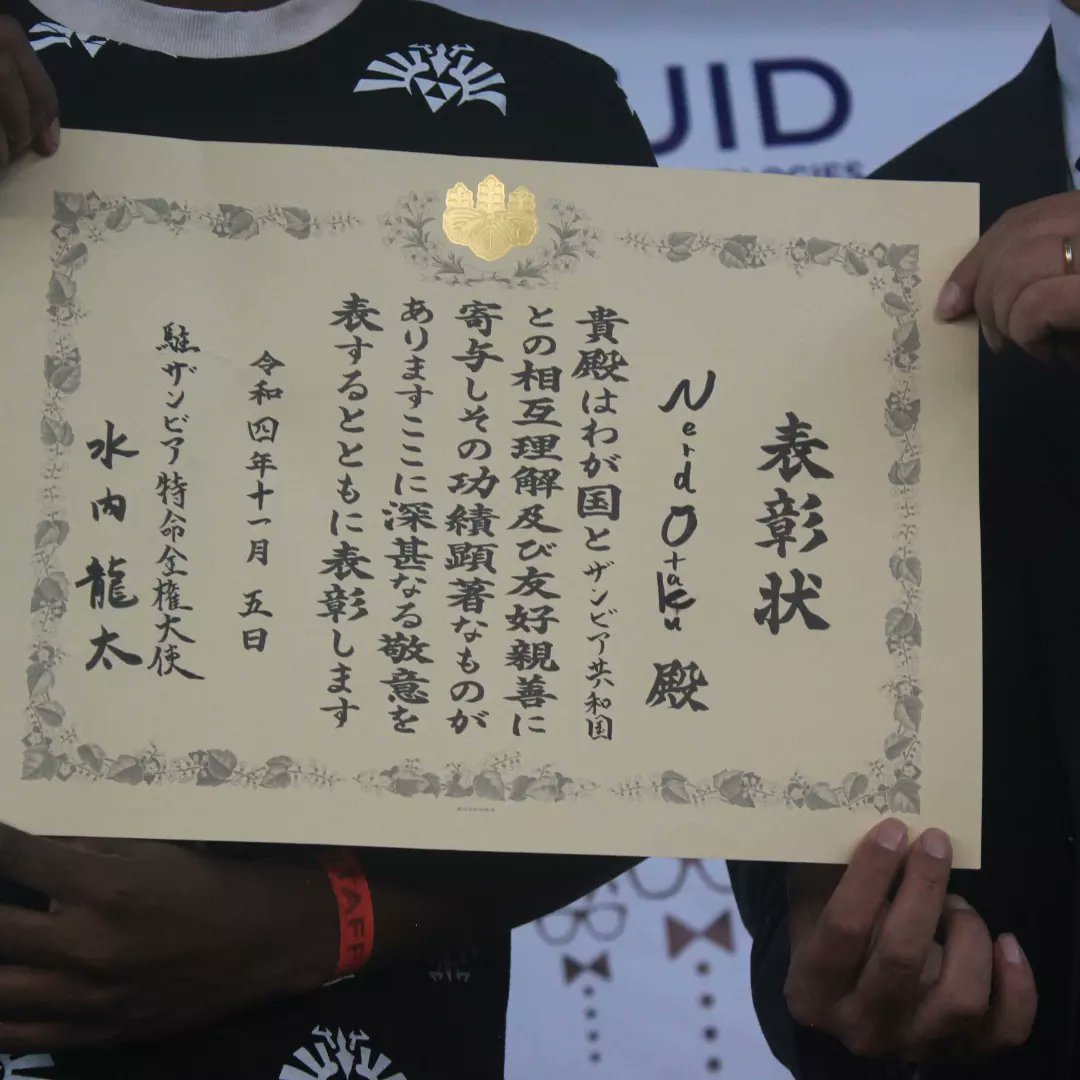 表彰状
Nerd Otaku 殿
貴殿はわが国とザンビア共和国
との相互理解及び友好親善に
寄与しその功績顕著なものが
ありますここに深甚なる敬意を
表するとともに表彰します
令和四年十一月五日
駐ザンビア特命全権大使
水内龍太
UID
OLOGIES
STAFF